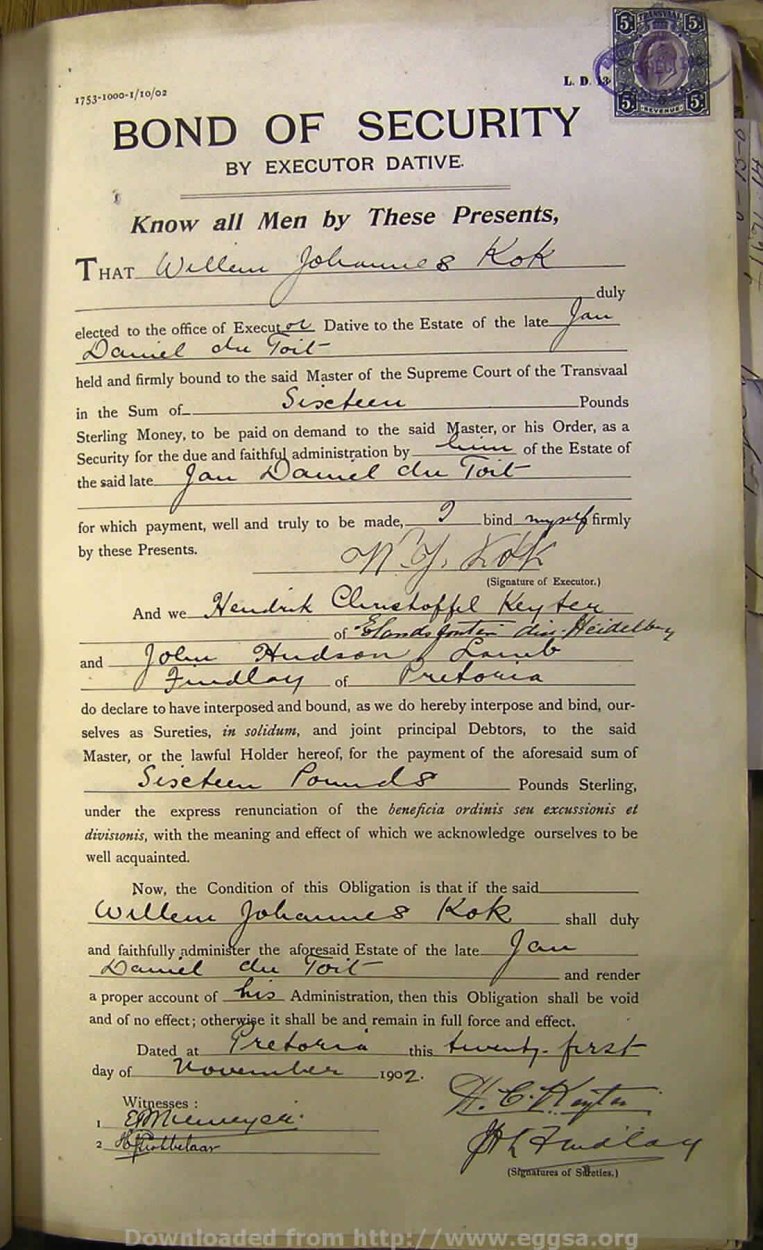 1753-1000-1/10/02
L. D. 13
5/ TRANSVAAL 5/
5/ REVENUE 5/
BOND OF SECURITY
BY EXECUTOR DATIVE.
Know all Men by These Presents,
THAT Willem Johannes Kok
duly
elected to the office of Executor Dative to the Estate of the late Jan
Daniel du Toit
held and firmly bound to the said Master of the Supreme Court of the Transvaal
in the Sum of Sixteen Pounds
Sterling Money, to be paid on demand to the said Master, or his Order, as a
Security for the due and faithful administration by him of the Estate of
the said late Jan Daniel du Toit
for which payment, well and truly to be made, I bind myself firmly
by these Presents.
W. J. Kok
(Signature of Executor.)
And we Hendrik Christoffel Keyter
of Elandsfontein dis. Heidelberg
and John Hudson Lamb
Findlay of Pretoria
do declare to have interposed and bound, as we do hereby interpose and bind, our-
selves as Sureties, in solidum, and joint principal Debtors, to the said
Master, or the lawful Holder hereof, for the payment of the aforesaid sum of
Sixteen Pounds Pounds Sterling,
under the express renunciation of the beneficia ordinis seu excussionis et
divisionis, with the meaning and effect of which we acknowledge ourselves to be
well acquainted.
Now, the Condition of this Obligation is that if the said
Willem Johannes Kok shall duly
and faithfully administer the aforesaid Estate of the late Jan
Daniel du Toit and render
a proper account of his Administration, then this Obligation shall be void
and of no effect; otherwise it shall be and remain in full force and effect.
Dated at Pretoria this twenty-first
day of November 1902.
Witnesses :
H. C. Keyter
1
2
J H L Findlay
(Signatures of Sureties.)
Downloaded from http://www.eggsa.org